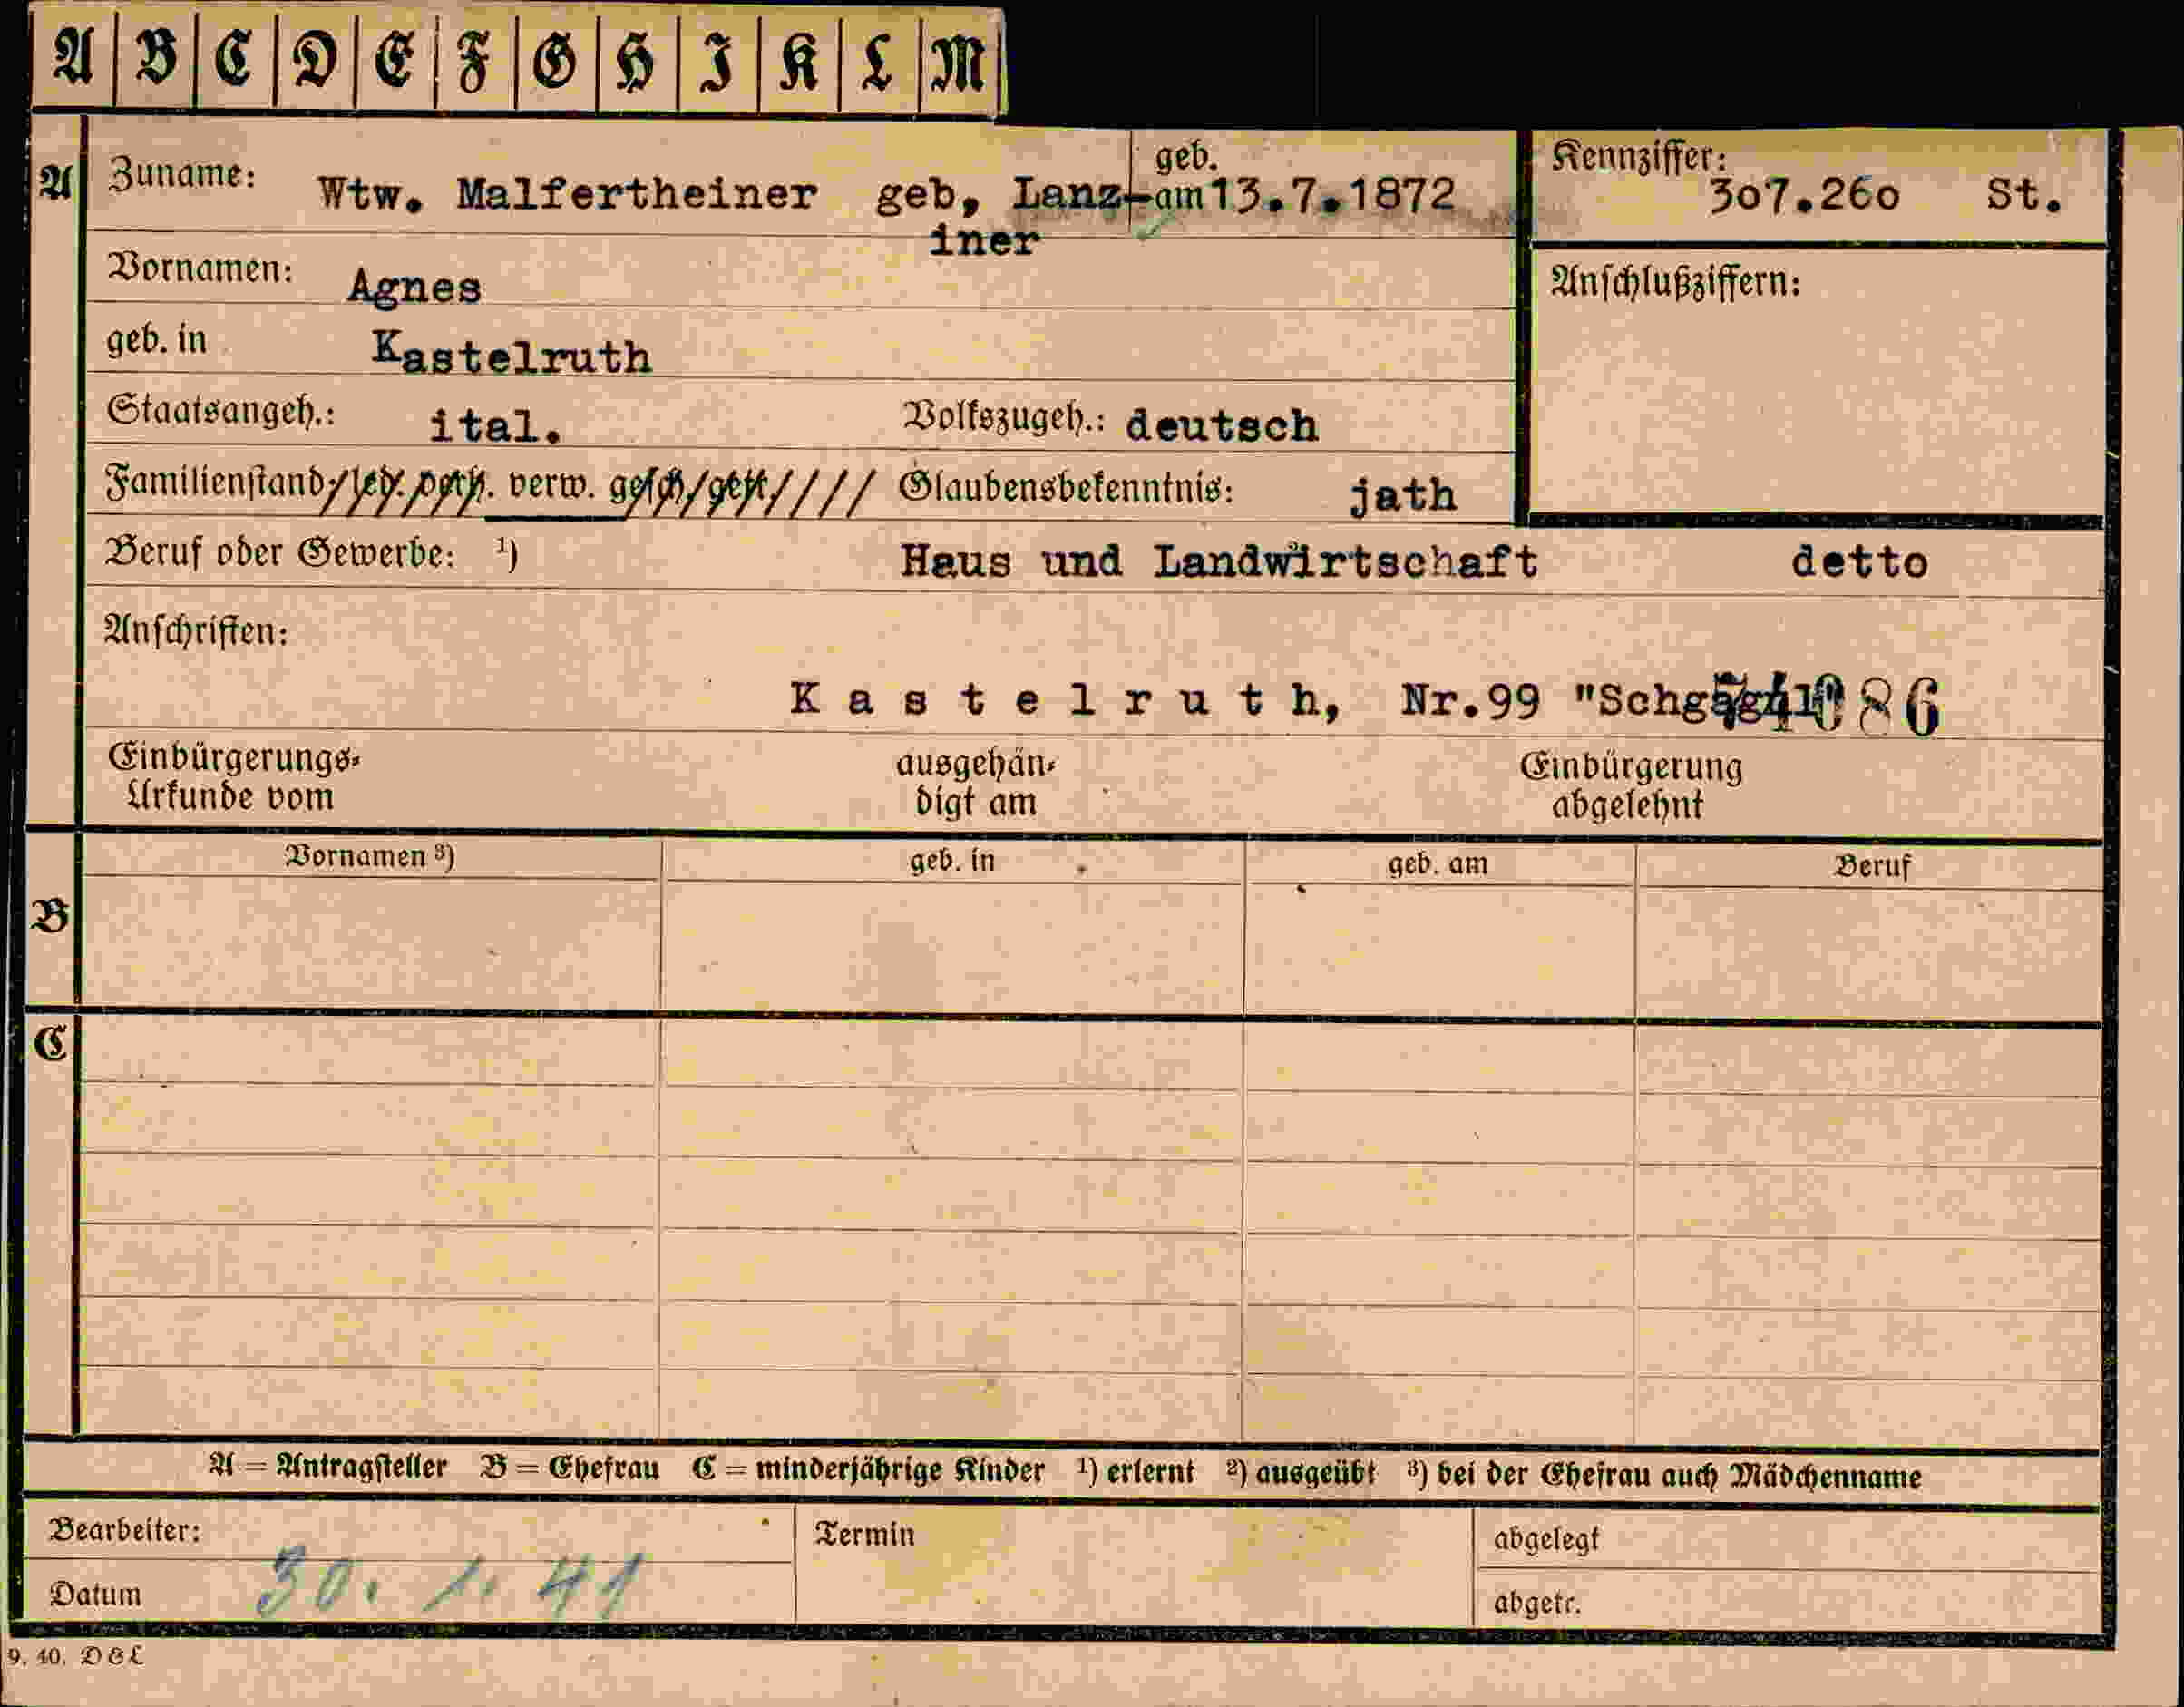 A B C D E F G H I K L M
A
Zuname: Wtw. Malfertheiner geb, Lanz-
iner
geb. am 13.7.1872
Kennziffer: 307.260 St.
Vornamen: Agnes
Anschlußziffern:
geb. in Kastelruth
Staatsangeh.: ital. Volkszugeh.: deutsch
Familienstand: led. verh. verw. gesch. getr. Glaubensbekenntnis: jath
Beruf oder Gewerbe: 1) Haus und Landwirtschaft detto
Anschriften:
Kastelruth, Nr.99
Einbürgerungs-
Urkunde vom
ausgehän-
digt am
Einbürgerung
abgelehnt
Vornamen 3) geb. in geb. am Beruf
B
C
A = Antragsteller B = Ehefrau C = minderjährige Kinder 1) erlernt 2) ausgeübt 3) bei der Ehefrau auch Mädchenname
Bearbeiter: Termin abgelegt
Datum 30. 1. 41 abgetr.
9. 40. D&L